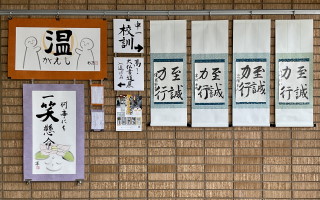 温
がえし
何事にも
一笑懸命
中一
校訓
高一
至誠
力行
至誠
力行
至誠
力行
至誠
力行